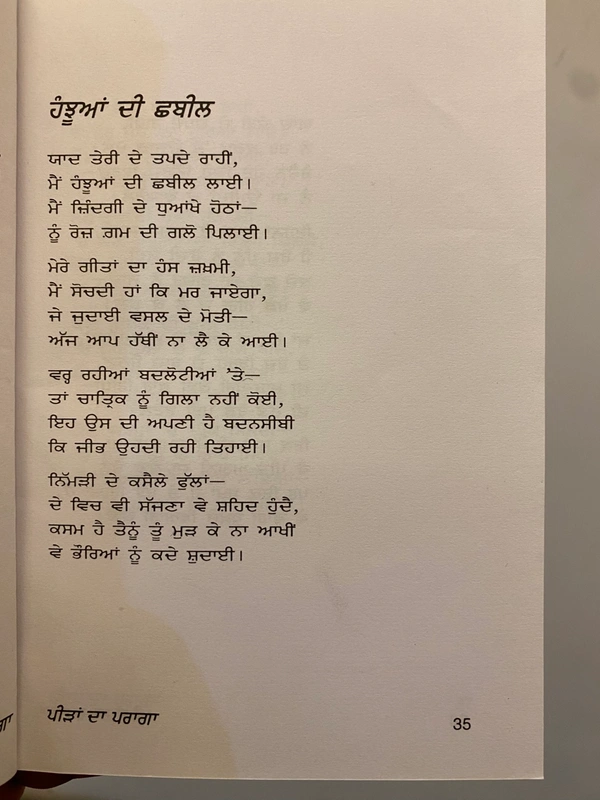 ਹੰਝੂਆਂ ਦੀ ਛਬੀਲ
ਯਾਦ ਤੇਰੀ ਦੇ ਤਪਦੇ ਰਾਹੀਂ,
ਮੈਂ ਹੰਝੂਆਂ ਦੀ ਛਬੀਲ ਲਾਈ।
ਮੈਂ ਜ਼ਿੰਦਗੀ ਦੇ ਧੁਆਂਖੇ ਹੋਠਾਂ—
ਨੂੰ ਰੋਜ਼ ਗ਼ਮ ਦੀ ਗਲੋ ਪਿਲਾਈ।
ਮੇਰੇ ਗੀਤਾਂ ਦਾ ਹੰਸ ਜ਼ਖ਼ਮੀ,
ਮੈਂ ਸੋਚਦੀ ਹਾਂ ਕਿ ਮਰ ਜਾਏਗਾ,
ਜੇ ਜੁਦਾਈ ਵਸਲ ਦੇ ਮੋਤੀ—
ਅੱਜ ਆਪ ਹੱਥੀਂ ਨਾ ਲੈ ਕੇ ਆਈ।
ਵਰ੍ਹ ਰਹੀਆਂ ਬਦਲੋਟੀਆਂ 'ਤੇ—
ਤਾਂ ਚਾਤ੍ਰਿਕ ਨੂੰ ਗਿਲਾ ਨਹੀਂ ਕੋਈ,
ਇਹ ਉਸ ਦੀ ਅਪਣੀ ਹੈ ਬਦਨਸੀਬੀ
ਕਿ ਜੀਭ ਉਹਦੀ ਰਹੀ ਤਿਹਾਈ।
ਨਿੰਮੜੀ ਦੇ ਕਸੈਲੇ ਫੁੱਲਾਂ—
ਦੇ ਵਿਚ ਵੀ ਸੱਜਣਾ ਵੇ ਸ਼ਹਿਦ ਹੁੰਦੈ,
ਕਸਮ ਹੈ ਤੈਨੂੰ ਤੂੰ ਮੁੜ ਕੇ ਨਾ ਆਖੀਂ
ਵੇ ਭੌਰਿਆਂ ਨੂੰ ਕਦੇ ਸ਼ੁਦਾਈ।
ਪੀੜਾਂ ਦਾ ਪਰਾਗਾ
35